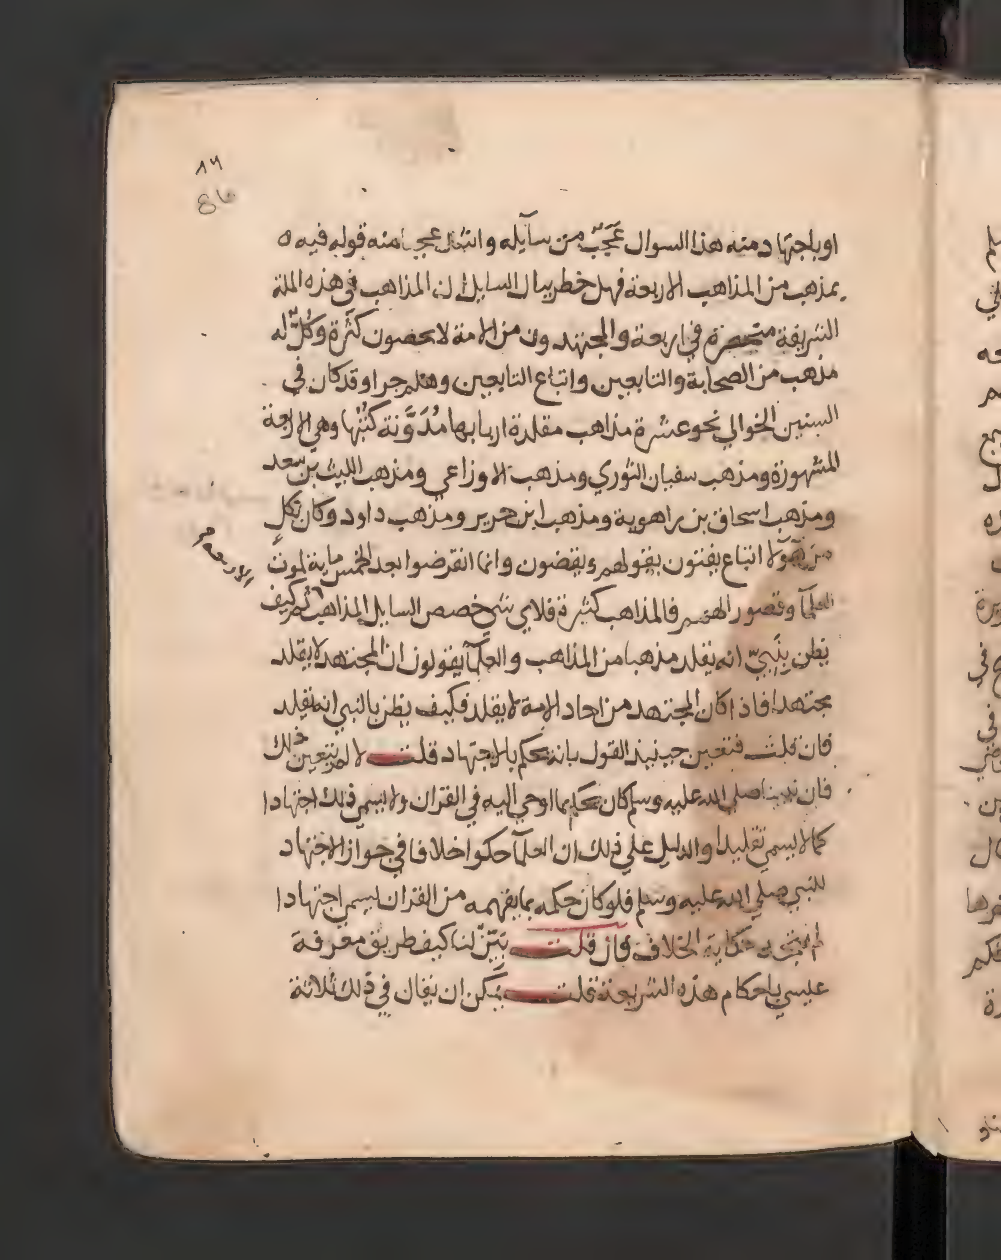 ٨٦
او باجتهاد منه هذا السوال عَجَبٌ من سآيله وانتقل عجبا منه قوله فيه ه
بمذهب من المذاهب الاربعة فهل خطر ببال السايل ان المذاهب في هذه الملة
الشريفة منحصرة في اربعة والمجتهدون من الامة لا يحصون كثرة وكلٌّ له
مذهب من الصحابة والتابعين واتباع التابعين وهلم جرا وقد كان في
السنين الخوالي نحو عشرة مذاهب مقلدة اربابها مُدَوَّنة كتبُها وهي الاربعة
المشهورة ومذهب سفيان الثوري ومذهب الاوزاعي ومذهب الليث بن سعد
ومذهب اسحاق بن راهوية ومذهب ابن جرير ومذهب داود وكان لكلٍ
من هؤلآ اتباع يفتون بقولهم ويقضون وانما انقرضوا بعد الخمس ماية لموت
العلمآ وقصور الهمم فالمذاهب كثيرة فلاي شيٍ خصص السايل المذاهب فكيف
الاربعه
يظن بنَبِيٍّ انه يقلد مذهبا من المذاهب والعلمآ يقولون ان المجتهد لا يقلد
مجتهدا فاذا كان المجتهد من احاد الامة لا يقلد فكيف يظن بالنبي انه يقلد
فان قلت فتعين حينيذ القول بانه يحكم بالاجتهاد قلت لا لم يتعين ذلك
فان نبينا صلي الله عليه وسلم كان يحكم بما اوحي اليه في القران ولا يسمي ذلك اجتهادا
كما لا يسمي تقليدا والدليل علي ذلك ان العلمآ حكوا خلافا في جواز الاجتهاد
للنبي صلي الله عليه وسلم فلو كان حكمه بما يفهمه من القران يسمي اجتهادا
لم تتجه حكاية الخلاف فان قلت بَيِّنْ لنا كيف طريق معرفة
عيسي باحكام هذه الشريعة قلت يمكن ان يقال في ذلك ثلاثة